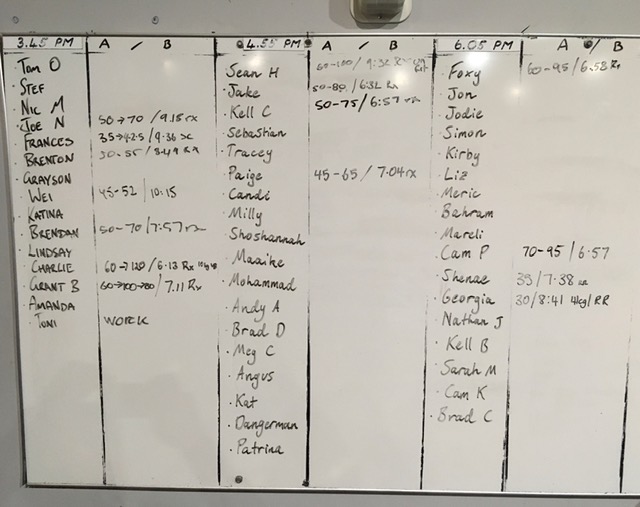 3.45 PM A / B
Tom O
Stef
Nic M
Joe N 50→70 / 9.15 rx
Frances 35→42.5 / 9.36 sc
Brenton 30-55 / 8.49 Rx
Grayson
Wei 45-52 / 10:15
Katina
Brendan 50-70 / 7:57 rx
Lindsay
Charlie 60→120 / 6.13 Rx
Grant B 60→100→80 / 7.11 Rx
Amanda
Toni WORK
4.55 PM A / B
Sean H 60-100 / 9:32 Rx
Jake 50-80 / 6:32 Rx
Kell C 50-75 / 6:57
Sebastian
Tracey
Paige 45-65 / 7.04 rx
Candi
Milly
Shoshannah
Maaike
Mohammad
Andy A
Brad D
Meg C
Angus
Kat
Dangerman
Patrina
6.05 PM A / B
Foxy 60-95 / 6.58 Rx
Jon
Jodie
Simon
Kirby
Liz
Meric
Bahram
Mareli
Cam P 70-95 / 6:57
Shenae 35 / 7.38
Georgia 30 / 8:41 4kg / RR
Nathan J
Kell B
Sarah M
Cam K
Brad C